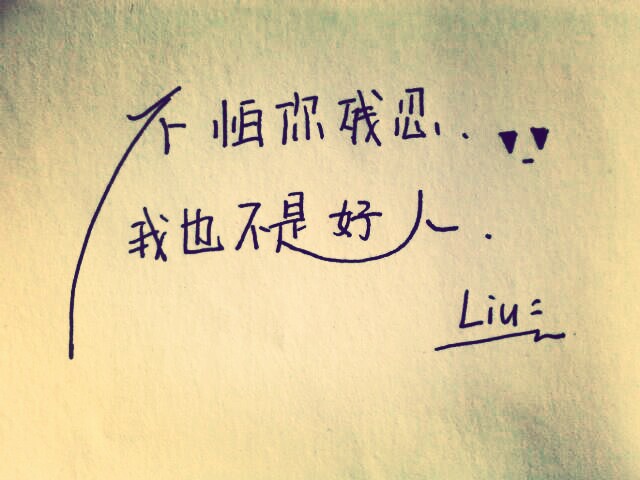 不怕你残忍.
我也不是好人.
Liu=